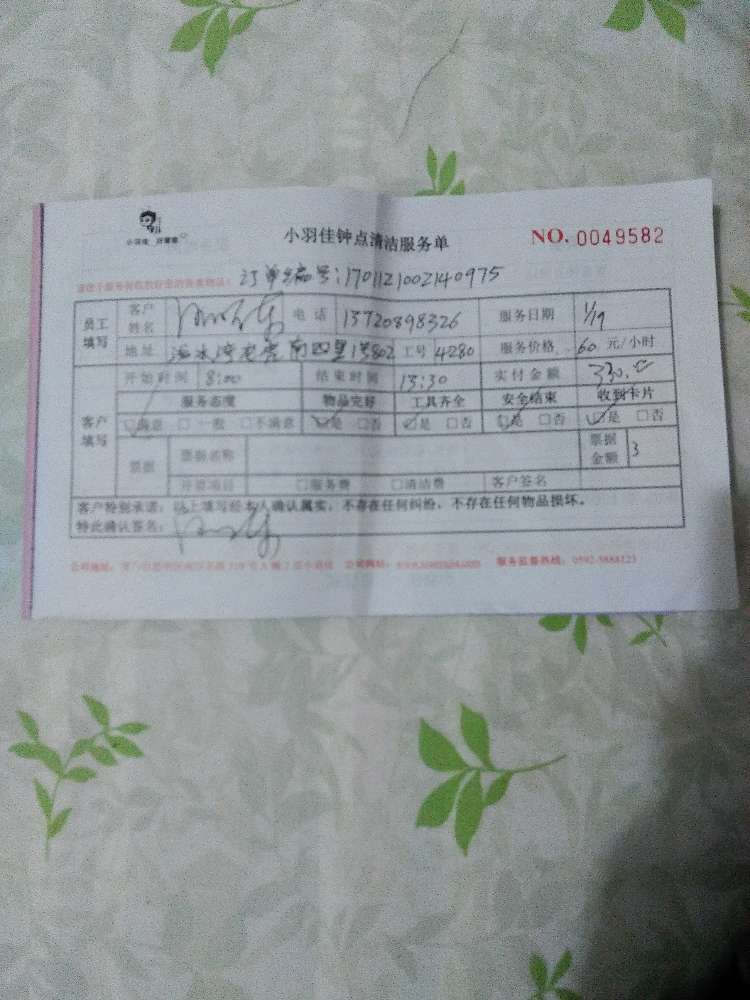 小羽佳钟点清洁服务单 NO. 0049582
订单编号:170112100214 0975
员工填写 客户姓名 电话 13720898326 服务日期 1/19
地址 南四里13802 工号 4280 服务价格 60 元/小时
开始时间 8:00 结束时间 13:30 实付金额 330.00
客户填写 服务态度 物品完好 工具齐全 安全结束 收到卡片
☑满意 □一般 □不满意 ☑是 □否 ☑是 □否 ☑是 □否 ☑是 □否
票据 票据名称 票据金额 3
开票项目 □服务费 □清洁费 客户签名
客户特别承诺:以上填写经本人确认属实,不存在任何纠纷,不存在任何物品损坏。
特此确认签名:
公司地址: 公司网站: 服务监督热线:0592-5888123